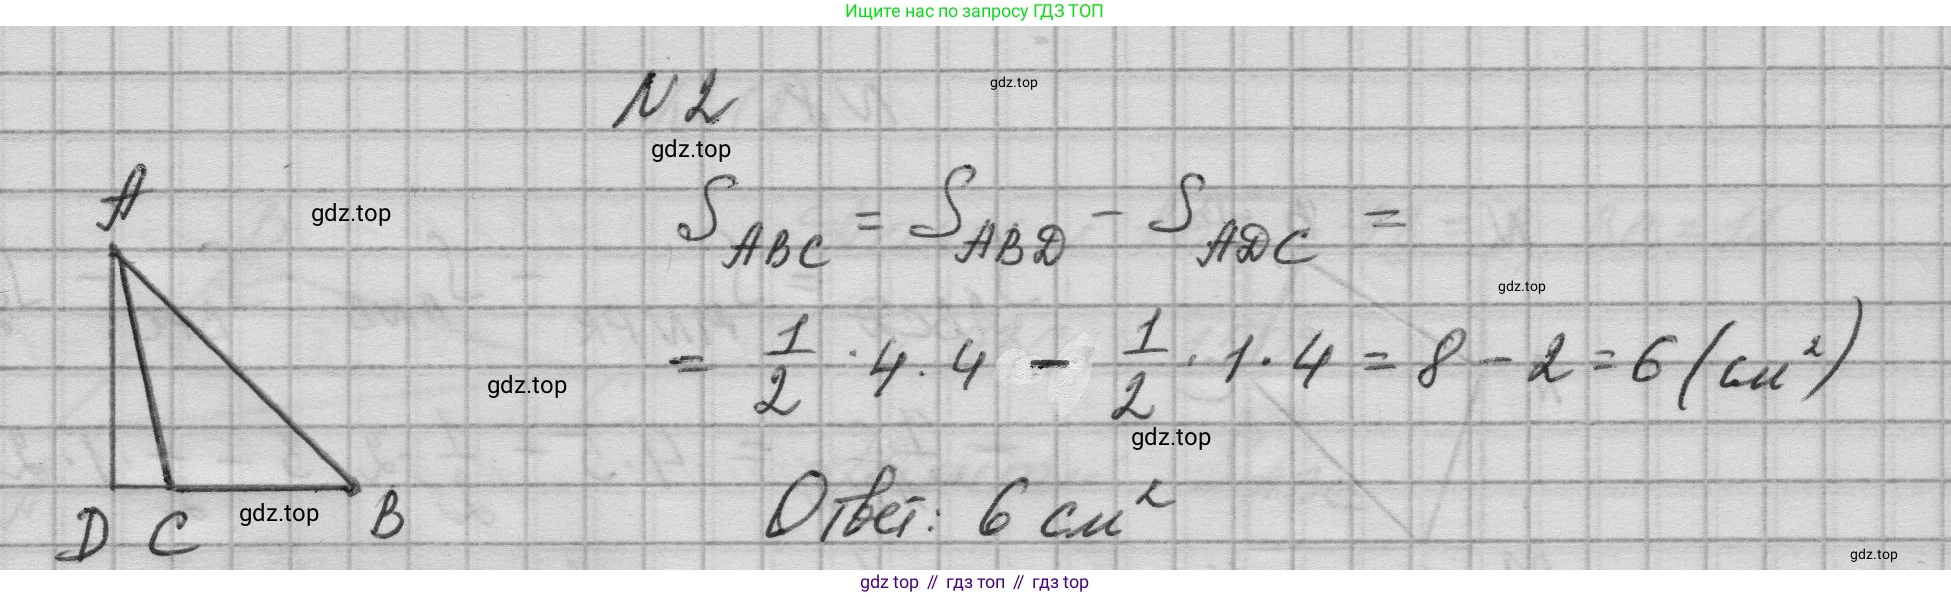 Ищите нас по запросу ГДЗ ТОП
N 2
gdz.top
gdz.top
A
gdz.top
S ABC = S ABD - S ADC =
gdz.top
= 1/2 · 4 · 4 - 1/2 · 1 · 4 = 8 - 2 = 6 (см²)
gdz.top
gdz.top
D C B
gdz.top
Ответ: 6 см²
gdz.top
gdz top // гдз топ // гдз top